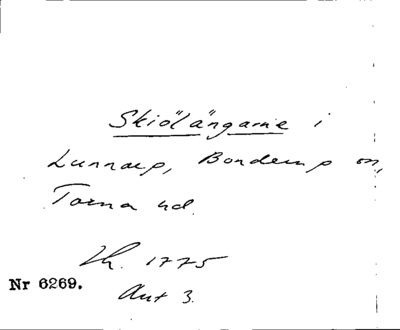 Skiölängarne i
Lunnarp, Bonderup sn,
Torna hd.
Lk. 1775
Nr 6269.
Akt 3.